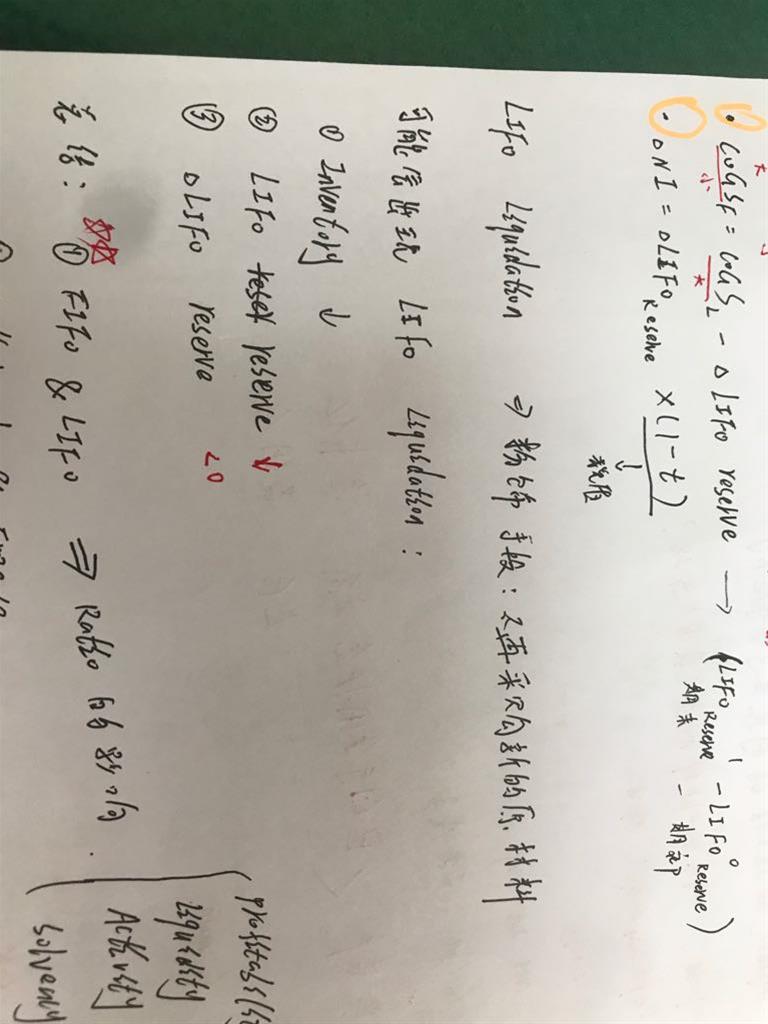 • COGSF = COGSL - △ LIFO reserve → (LIFO Reserve¹ - LIFO Reserve⁰)
期末 - 期初
• △NI = △LIFO Reserve × (1-t)
↓
税盾
LIFO Liquidation ⇒ 粉饰手段：不再采购新的原材料
可能会出现 LIFO Liquidation：
① Inventory ↓
② LIFO reserve ↓
③ △LIFO reserve <0
总结： ① FIFO & LIFO ⇒ Ratio 的影响.
Liquidity
Activity
Solvency